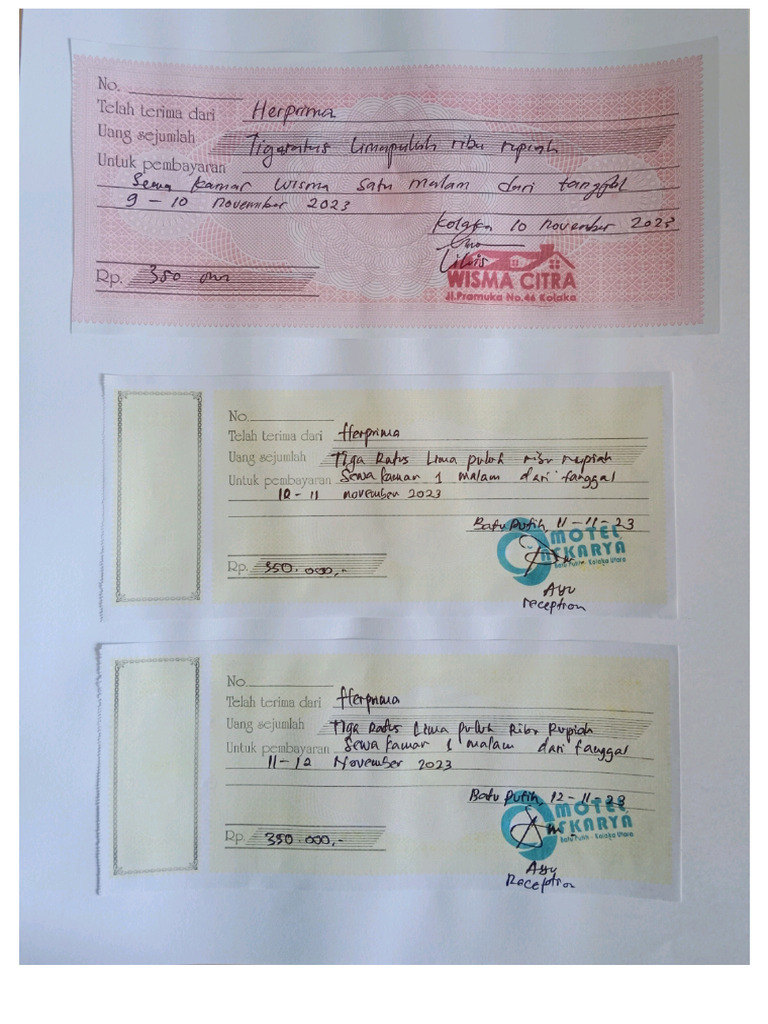 No.
Telah terima dari Herprima
Uang sejumlah Tigaratus Limapuluh ribu rupiah
Untuk pembayaran
Sewa kamar wisma satu malam dari tanggal
9 - 10 November 2023
Kolaka 10 November 2023
Lilis
Rp. 350
WISMA CITRA
Jl.Pramuka No.44 Kolaka
No.
Telah terima dari Herprima
Uang sejumlah Tiga Ratus Lima puluh ribu Rupiah
Untuk pembayaran Sewa kamar 1 malam dari tanggal
10 - 11 November 2023
Batu Putih, 11 - 11 - 23
MOTEL
SKARYA
Batu Putih - Kolaka Utara
Rp. 350.000,-
Ayu
reception
No.
Telah terima dari Herprima
Uang sejumlah Tiga Ratus Lima puluh Ribu Rupiah
Untuk pembayaran Sewa kamar 1 malam dari tanggal
11 - 12 November 2023
Batu Putih, 12 - 11 - 23
MOTEL
SKARYA
Batu Putih - Kolaka Utara
Rp. 350.000,-
Ayu
Reception